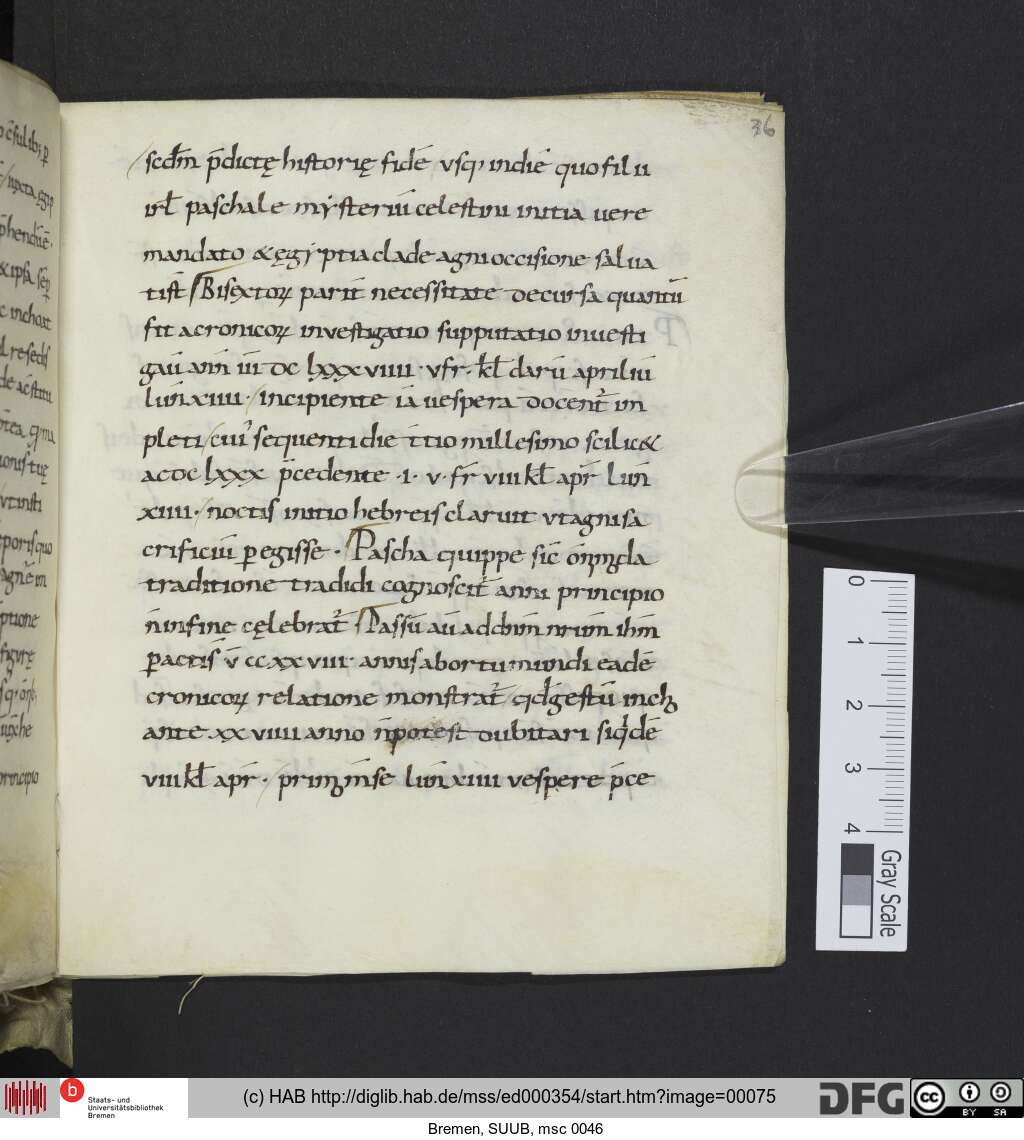 36
scdm̄ p̄dictę historię fidē usq; indiē quo filii
irl̄ paschale mẏsteriū celestini initia uere
mandato &ęgiptia clade agni occisione salua
ti st̄ Bisextoꝝ parit necessitate decursa quantū
fit acronicoꝝ inuestigatio supputatio inuesti
gaū ann̄ iii dc lxxxviiii · v fr̄ · kl̄ darū apriliū
lun̄ xiiii · incipiente iā uespera docent᷒ im
pleti cui᷒ sequenti die t̄tio millesimo scilic&
ac dc lxxx p̄cedente · i · v · fr̄ viii kl̄ apr̄ lun̄
xiiii · noctis initio hebreis claruit ut agni sa
crificiū ꝑegisse · Pascha quippe sic̄
traditione tradidi cognoscit᷒ anni principio
n̄ infine cęlebrat᷒ Passū aū dn̄m nr̄m ihm̄
ꝑactis v̄ ccxxviii · annis abortu mundi eadē
cronicoꝝ relatione monstrat᷒ gestū
ante xxviiii anno n̄ potest dubitari siqdē
viii kl̄ apr̄ · mense lun̄ xiiii vespere p̄ce
0
1
2
3
4
Gray Scale
b
Staats- und
Universitätsbibliothek
Bremen
(c) HAB http://diglib.hab.de/mss/ed000354/start.htm?image=00075
DFG
cc
BY SA
Bremen, SUUB, msc 0046